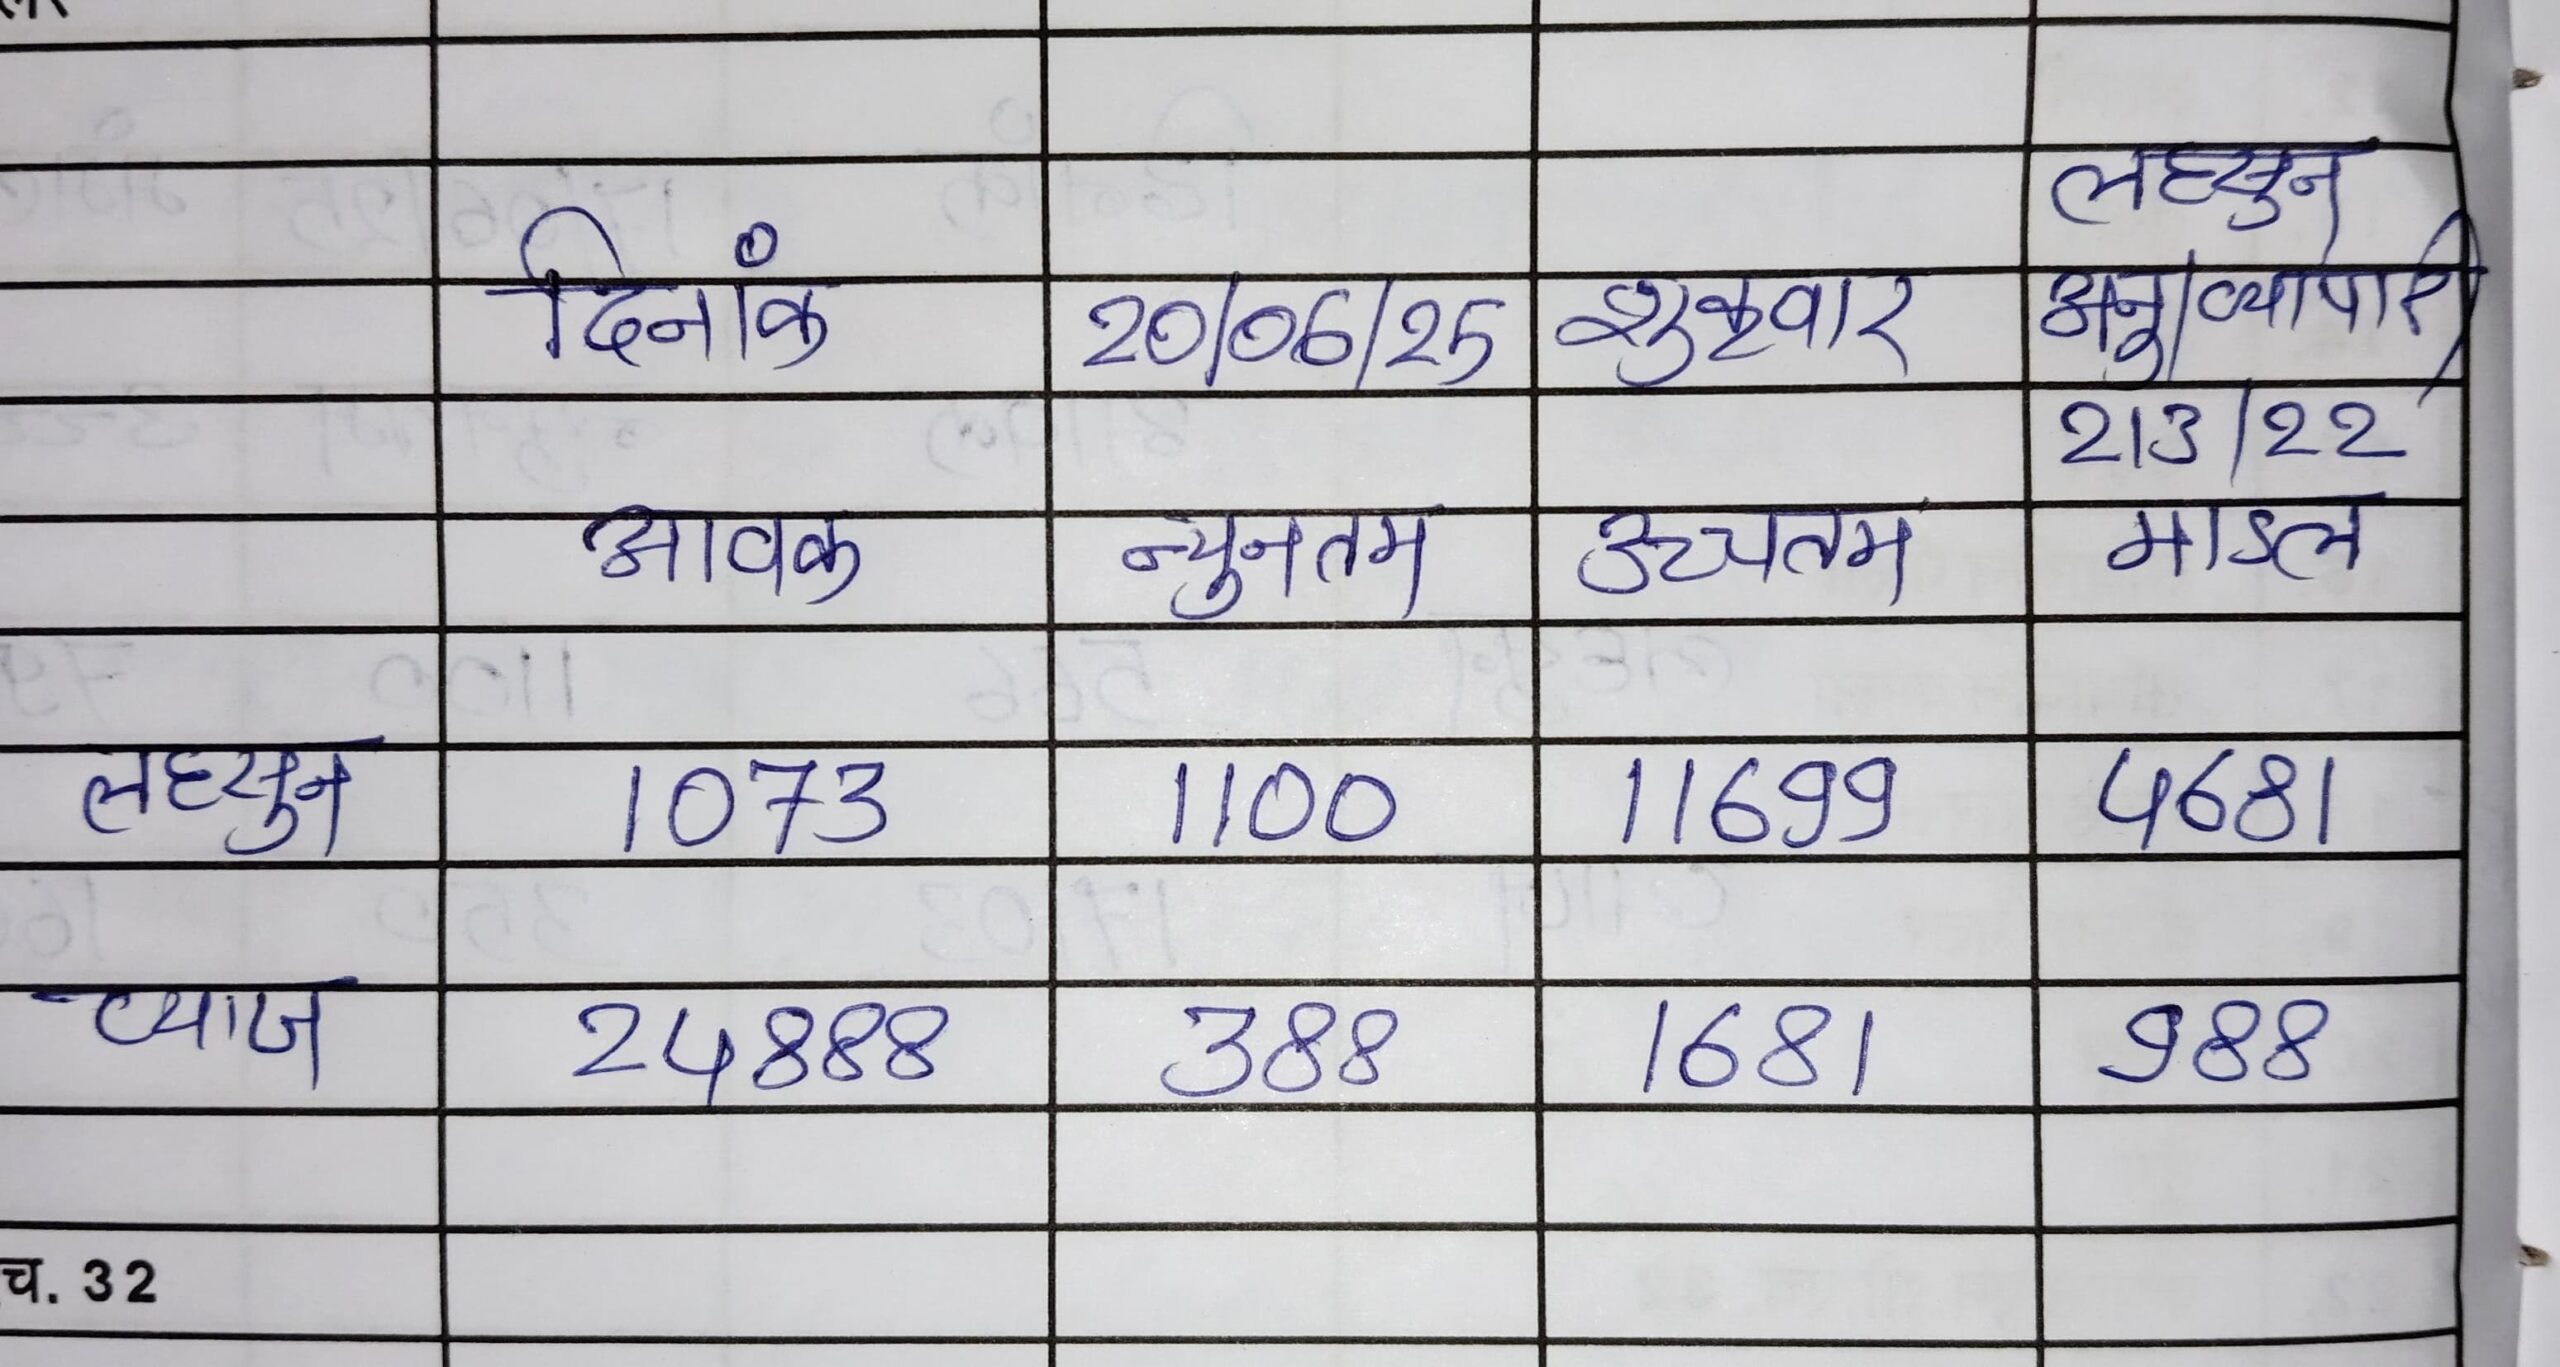 लहसुन
दिनांक 20/06/25 शुक्रवार अनु/व्यापारी
213/22
आवक न्युनतम उच्चतम माडल
लहसुन 1073 1100 11699 4681
प्याज 24888 388 1681 988
च. 32